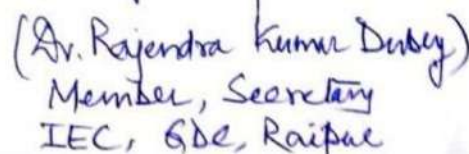 (Dr. Rajendra Kumar Dubey)
Member, Secretary
IEC, GDC, Raipur